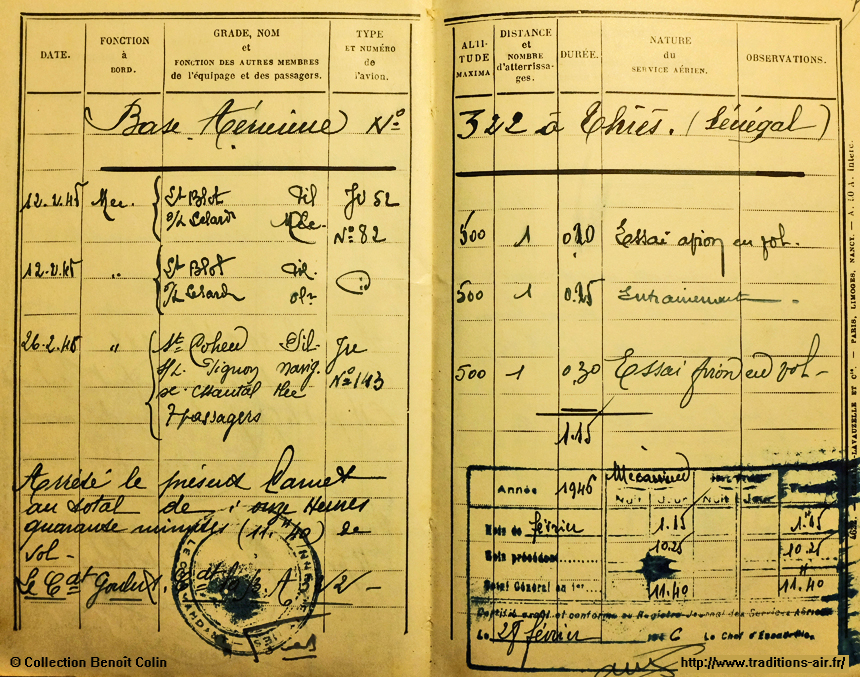 DATE.
FONCTION
à
BORD.
GRADE, NOM
et
FONCTION DES AUTRES MEMBRES
de l'équipage et des passagers.
TYPE
ET NUMÉRO
de
l'avion.
ALTI-
TUDE
MAXIMA
DISTANCE
et
NOMBRE
d'atterrissa-
ges.
DURÉE.
NATURE
du
SERVICE AÉRIEN.
OBSERVATIONS.
Base Aérienne No 322 à Thiès. (Sénégal)
12.2.45 Mec. St Blot Pil JU 52
S/L Celard Mec. No 82
500 1 0.20 Essai avion en vol.
12.2.45 " St Blot Pil.
S/L Celard
500 1 0.25 Entrainement
26-2.46 " St Cohen Pil- Ju
S/L Pignon navig. No 143
Sc Chantal Mec
7 passagers
500 1 0.30 Essai avion en vol-
1.15
Arrêté le présent Carnet
au total de : onze Heures
quarante minutes (11.40) de
vol-
Le Cdt
Année 1946 Mécanicien
Nuit Jour Nuit Jour
Mois de février 1.15 1.15
Mois précédent 10.25 10.25
Total Général en 11.40 11.40
exact et conforme au Registre-Journal des Services
Le 28 février 6 Le Chef d'Escadrille
LAVAUZELLE ET Cie. — PARIS, LIMOGES, NANCY. —
© Collection Benoît Colin
http://www.traditions-air.fr/